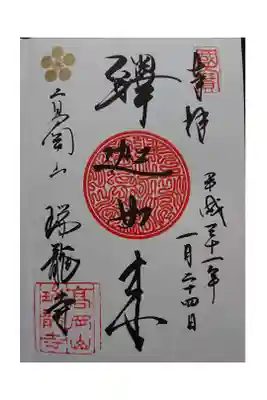 国宝
奉拝
平成三十一年
一月二十四日
釋迦如来
高岡山
瑞龍寺
高岡山
瑞龍寺